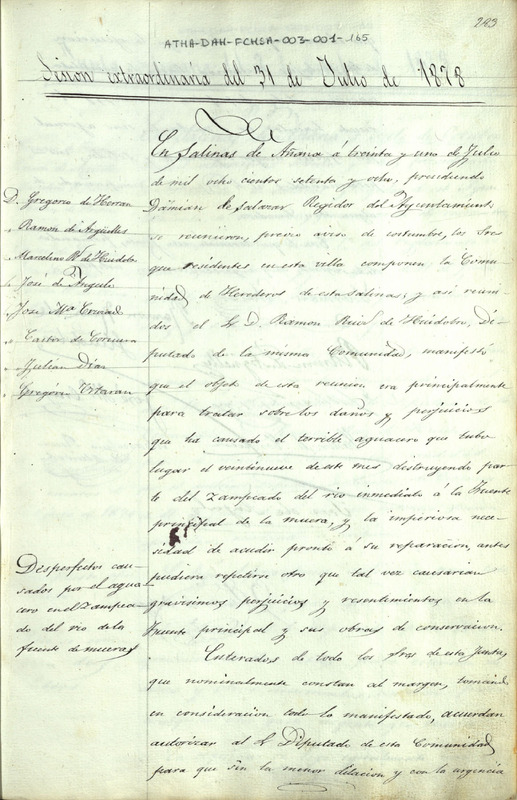 283
ATHA-DAH-FCHSA-003-001-165
Sesion extraordinaria del 31 de Julio de 1878
En Salinas de Añana á treinta y uno de Julio
de mil ocho cientos setenta y ocho, presidiendo
Dámian de Salazar Regidor del Ayuntamiento
se reunieron, previo aviso de costumbre, los Sres
que residentes en esta villa componen la Comu-
nidad de Herederos de estas salinas; y asi reuni-
dos el S. D. Ramon Ruiz de Huidobro, Di-
putado de la misma Comunidad, manifestó
que el objeto de esta reunion era principalmente
para tratar sobre los daños y perjuicios
que ha causado el terrible aguacero que tubo
lugar el veintinueve de este mes destruyendo par-
te del zampeado del rio inmediato á la Fuente
principal de la muera, y la imperiosa nece-
sidad de acudir pronto á su reparacion, antes
pudiera repetirse otro que tal vez causarian
gravisimos perjuicios y resentimientos en la
Fuente principal y sus obras de conservacion.
Enterados de todo los Sras de esta Junta,
que nominalmente constan al margen, tomando
en consideracion todo lo manifestado, acuerdan
autorizar al S. Diputado de esta Comunidad
para que sin la menor dilacion y con la urgencia
D. Gregorio de Herran
" Ramon de Argüelles
" Marcelino R. de Huidobro
" José de Angulo
" José Mª
" Castor de Corcuera
" Julian Dias
" Gregorio Urtaran
Desperfectos cau-
sados por el agua-
cero en el zampea-
do del rio de la
fuente de muera